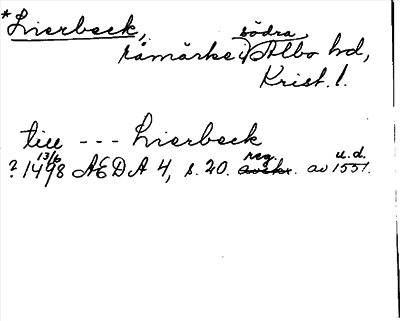 *Lierbeck,
råmärke i södra Albo hd,
Krist. l.
till --- Lierbeck
? 13/6 1498 ÆDA 4, s. 20. reg. av u.d. 1551.